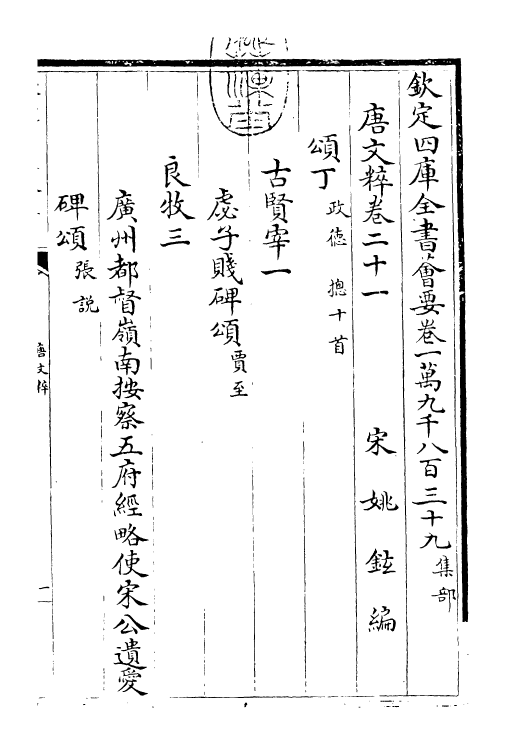 欽定四庫全書薈要卷一萬九千八百三十九集部
唐文粹卷二十一 宋姚鉉編
頌丁政德 摠十首
古賢宰一
虙子賤碑頌賈至
良牧三
廣州都督嶺南按察五府經略使宋公遺愛
碑頌張說
唐文粹
一